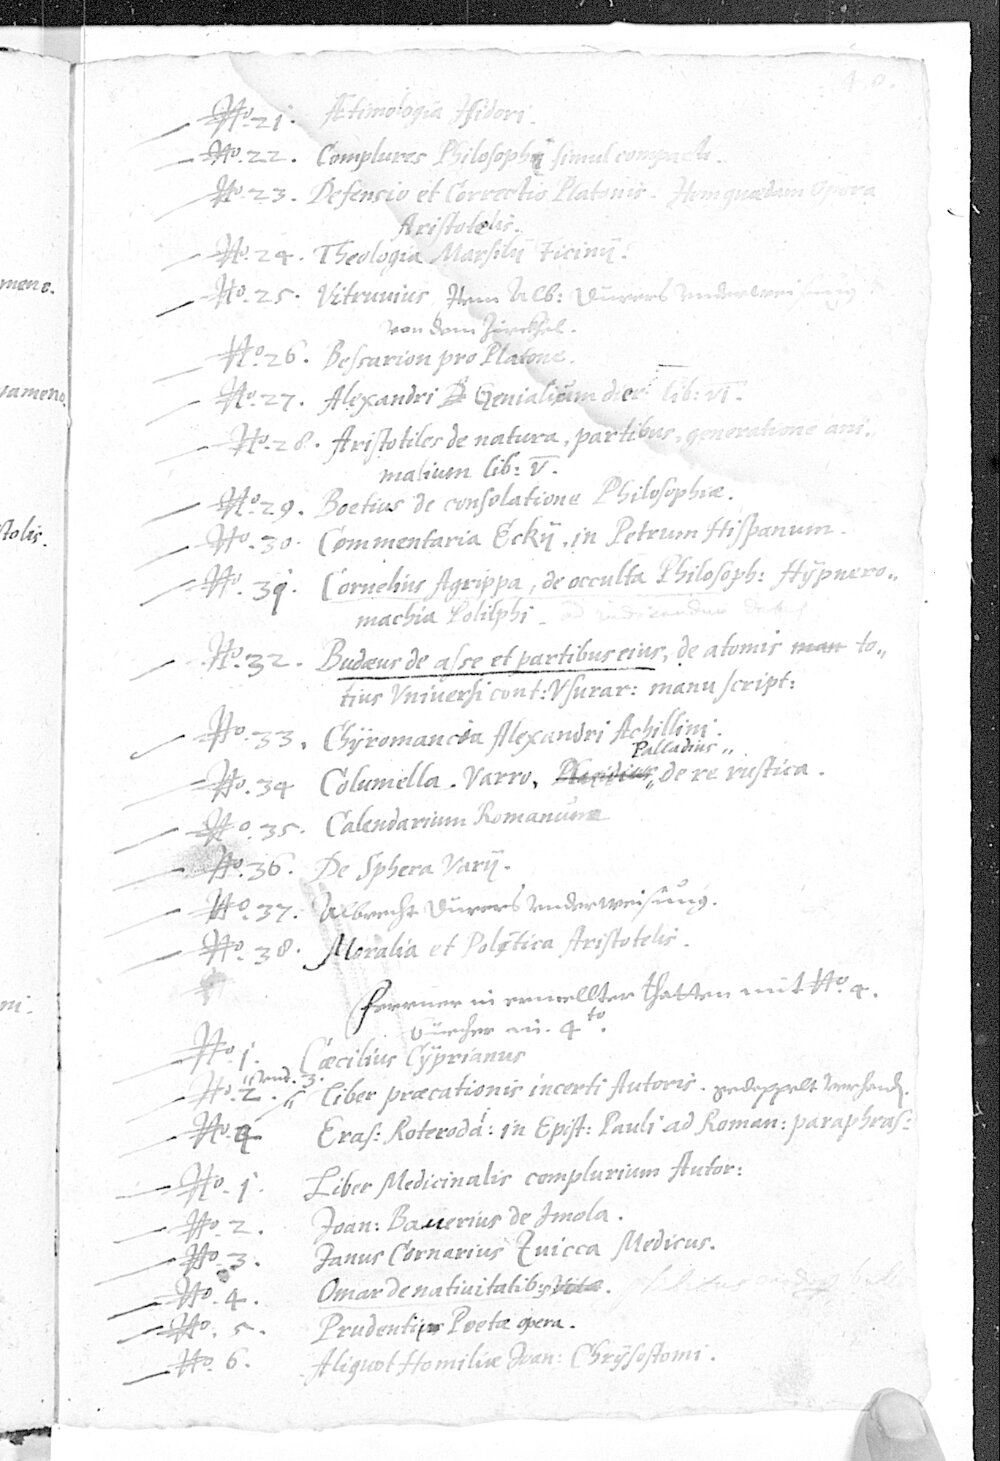 40.
No. 21. Ætimologia Isidori.
No. 22. Complures Philosophi simul compacti.
No. 23. Defensio et Correctio Platonis. Item quædam Opera
Aristotelis.
No. 24. Theologia Marsilÿ Ficinÿ.
No. 25. Vitruvius Item Alb: Dürers Underweisung
von dem Zirckhel.
No. 26. Bessarion pro Platone.
No. 27. Alexandri Genialium dier: lib: VI.
No. 28. Aristotiles de natura, partibus, generatione ani„
malium lib: V.
No. 29. Boetius de consolatione Philosophiæ.
No. 30. Commentaria Eckÿ, in Petrum Hispanum.
No. 31. Cornelius Agrippa, de occulta Philosoph: Hÿpnero„
machia Poliphi
No. 32. Budæus de asse et partibus eius, de atomis man to„
tius Universi cont: Usurar: manuscript:
No. 33. Chÿromancia Alexandri Achillini.
Palladius„
No. 34 Columella. Varro, de re rustica.
No. 35. Calendarium Romanum
No. 36. De Sphera Varÿ.
No. 37. Albrecht Dürers Underweisung.
No. 38. Moralia et Politica Aristotelis.
Ferrner in ermellter Thatten mit No. 4.
Büecher in 4to.
No. 1. Cæcilius Cÿprianus
No. 2. „vnd. 3. Liber præcationis incerti Autoris. gedoppelt verhand.
No. 4 Eras: Roteroda: in Epist: Pauli ad Roman: paraphras:
No. 1. Liber Medicinalis complurium Autor:
No. 2. Joan: Bauerius de Imola.
No. 3. Janus Cornarius Zuicca Medicus.
No. 4. Omar de nativitatib9
No. 5. Prudentius Poetæ opera.
No. 6. Aliquot Homiliæ Joan: Chrÿsostomi.